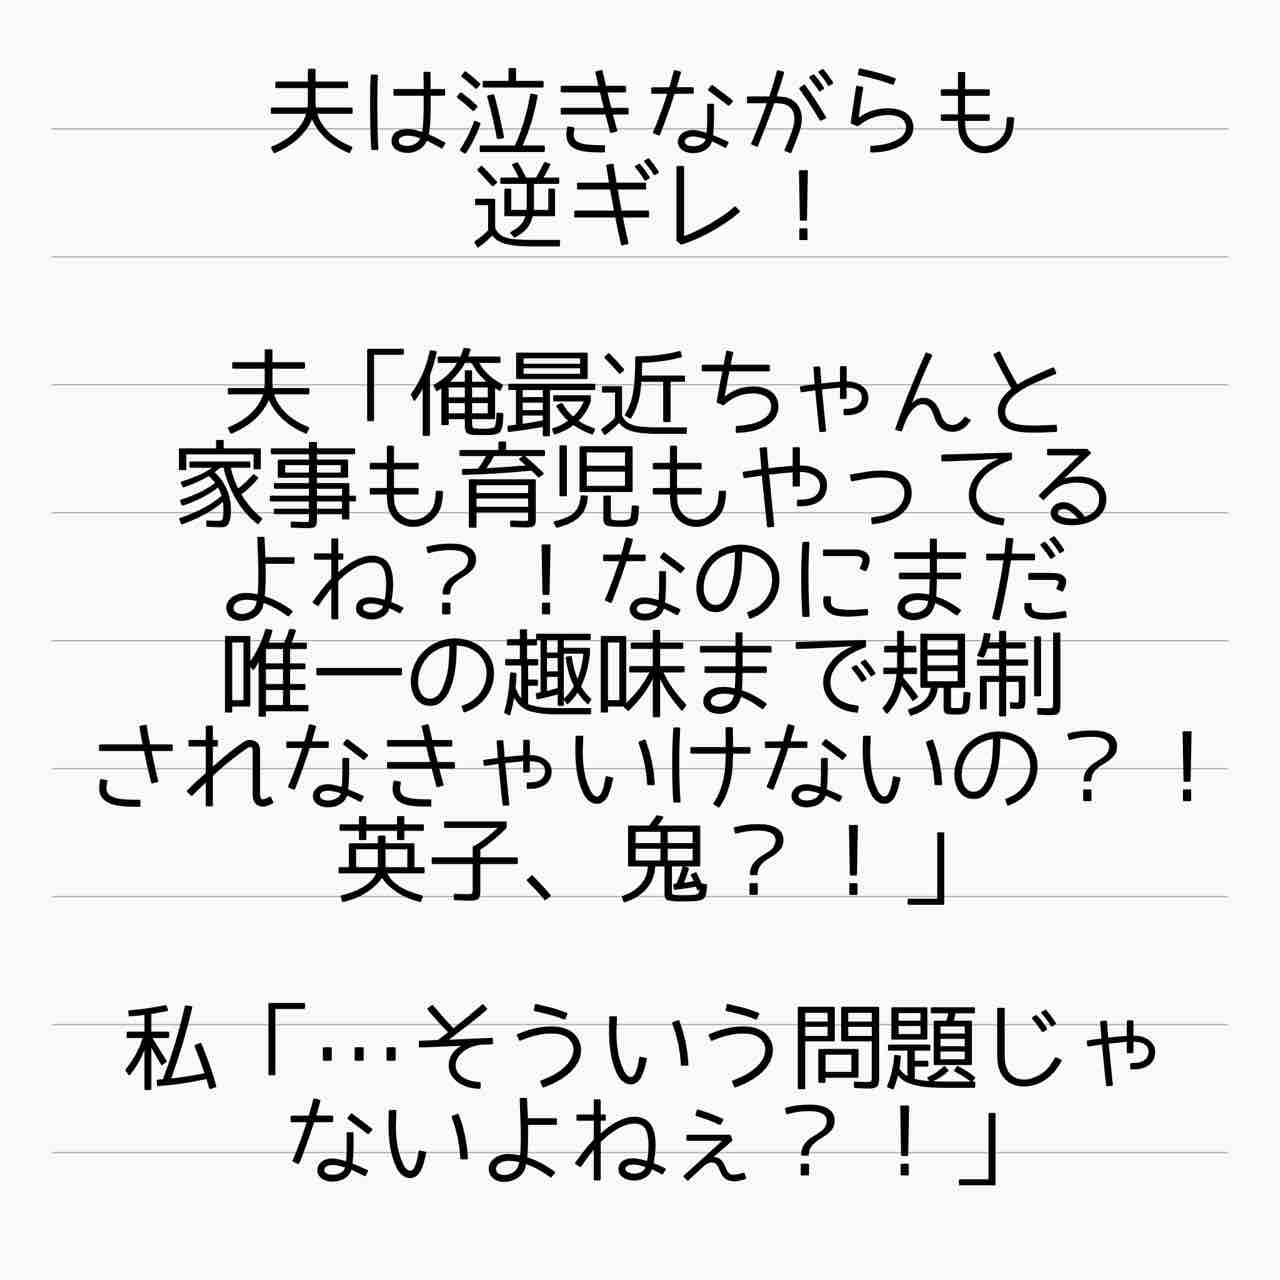 夫は泣きながらも
逆ギレ！
夫「俺最近ちゃんと
家事も育児もやってる
よね？！なのにまだ
唯一の趣味まで規制
されなきゃいけないの？！
英子、鬼？！」
私「…そういう問題じゃ
ないよねぇ？！」